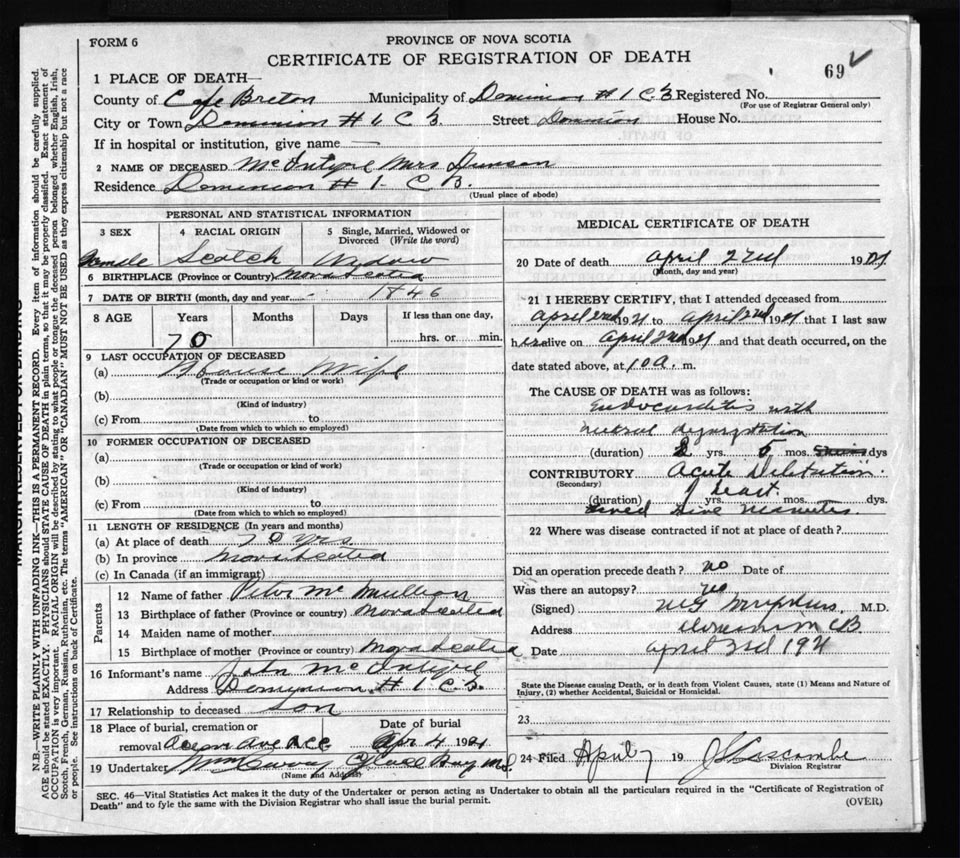 FORM 6
PROVINCE OF NOVA SCOTIA
CERTIFICATE OF REGISTRATION OF DEATH
69
1 PLACE OF DEATH—
County of Cape Breton Municipality of Dominion # 1 C.B. Registered No.
(For use of Registrar General only)
City or Town Dominion # 1 C B. Street Dominion House No.
If in hospital or institution, give name —
2 NAME OF DECEASED McIntyre Mrs Duncan
Residence Dominion # 1 - C B.
(Usual place of abode)
PERSONAL AND STATISTICAL INFORMATION
3 SEX 4 RACIAL ORIGIN 5 Single, Married, Widowed or Divorced (Write the word)
Female Scotch Widow
6 BIRTHPLACE (Province or Country) Nova Scotia
7 DATE OF BIRTH (month, day and year) - 1846
8 AGE Years Months Days If less than one day,
70 hrs. or min.
9 LAST OCCUPATION OF DECEASED
(a) House Wife
(Trade or occupation or kind or work)
(b)
(Kind of industry)
(c) From to
(Date from which to which so employed)
10 FORMER OCCUPATION OF DECEASED
(a)
(Trade or occupation or kind of work)
(b)
(Kind of industry)
(c) From to
(Date from which to which so employed)
11 LENGTH OF RESIDENCE (In years and months)
(a) At place of death 70 yrs
(b) In province Nova Scotia
(c) In Canada (if an immigrant)
Parents
12 Name of father Peter Mc
13 Birthplace of father (Province or country) Nova Scotia
14 Maiden name of mother
15 Birthplace of mother (Province or country) Nova Scotia
16 Informant's name John McIntyre
Address Dominion # 1 C.B.
17 Relationship to deceased Son
18 Place of burial, cremation or Date of burial
removal Apr 4 1921
19 Undertaker Glace Bay
(Name and Address)
MEDICAL CERTIFICATE OF DEATH
20 Date of death April 2nd 1921
(Month, day and year)
21 I HEREBY CERTIFY, that I attended deceased from
April 2nd 1921 to April 2nd 1921 that I last saw
her alive on April 2nd 21 and that death occurred, on the
date stated above, at 10 a. m.
The CAUSE OF DEATH was as follows:
Endocarditis with
mitral regurgitation
(duration) 2 yrs. 5 mos. dys
CONTRIBUTORY Acute Dilatation
(Secondary) of heart.
(duration) yrs. mos. dys.
lived five minutes.
22 Where was disease contracted if not at place of death?
Did an operation precede death? no Date of
Was there an autopsy?
(Signed) M.D.
Address Dominion CB
Date April 2nd 1921
State the Disease causing Death, or in death from Violent Causes, state (1) Means and Nature of
Injury, (2) whether Accidental, Suicidal or Homicidal.
23
24 Filed April 7 19
Division Registrar
SEC. 46—Vital Statistics Act makes it the duty of the Undertaker or person acting as Undertaker to obtain all the particulars required in the "Certificate of Registration of
Death" and to fyle the same with the Division Registrar who shall issue the burial permit.
(OVER)
MARGIN RESERVED FOR BINDING
N.B.—WRITE PLAINLY WITH UNFADING INK—THIS IS A PERMANENT RECORD. Every item of information should be carefully supplied.
AGE should be stated EXACTLY. PHYSICIANS should STATE CAUSE OF DEATH in plain terms, so that it may be properly classified. Exact statement of
OCCUPATION is very important. RACIAL ORIGIN will be described by stating to what people or tongue the deceased person belonged whether English, Irish,
Scotch, French, German, Russian, Ruthenian, etc. The terms "AMERICAN" OR "CANADIAN" MUST NOT BE USED as they express citizenship but not a race
or people. See instructions on back of Certificate.